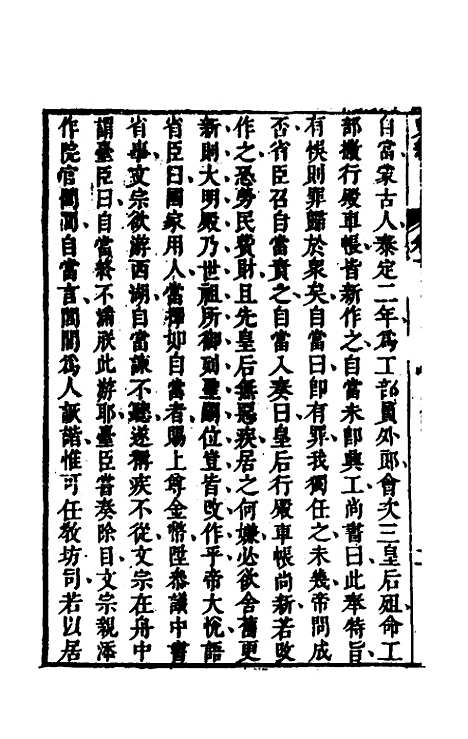 自當蒙古人泰定二年爲工部員外郎會次三皇后殂命工
部撤行殿車帳皆新作之自當未即興工尚書曰此奉特旨
有悞則罪歸於衆矣自當曰即有罪我獨任之未幾帝問成
否省臣召自當責之自當入奏曰皇后行殿車帳尚新若改
作之恐勞民費財且先皇后無惡疾居之何嫌必欲舍舊更
新則大明殿乃世祖所御列聖嗣位豈皆改作乎帝大悅語
省臣曰國家用人當擇如自當者賜上尊金幣陞叅議中書
省事文宗欲游西湖自當諫不聽遂稱疾不從文宗在舟中
謂臺臣曰自當終不滿朕此游耶臺臣嘗奏除目文宗親添
作院官閭閭自當言閭閭爲人詼諧惟可任敎坊司若以居